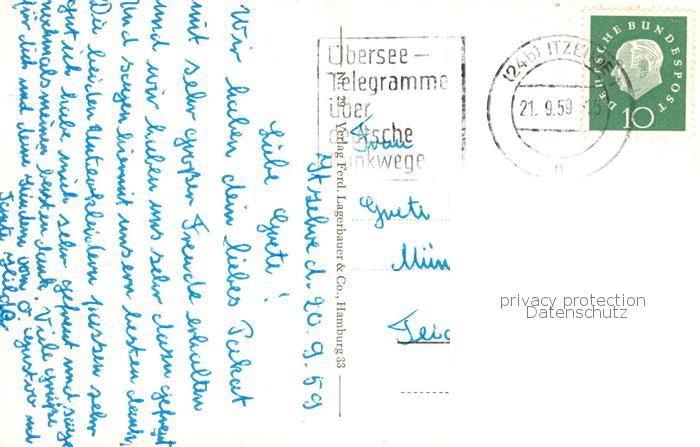 Itzehoe d. 20.9.59
Liebe Grete!
Wir haben dein liebes Paket
mit sehr großer Freude erhalten
und wir haben uns sehr dazu gefreut
und sagen hiermit unsern besten dank,
Die beiden Unterkleider passen sehr
gut ich habe mich sehr gefreut und sage
nochmals meinen besten dank! Viele Grüße
für dich und den Kindern von O. Gustav und
Tante Hilde
No. 29 Verlag Ferd. Lagerbauer & Co., Hamburg 33
Übersee-
Telegramme
über
deutsche
Funkwege
(24b) ITZEHOE
21.9.59-15
a
DEUTSCHE BUNDESPOST
10
Frau
Grete
Mün
Teic
privacy protection
Datenschutz